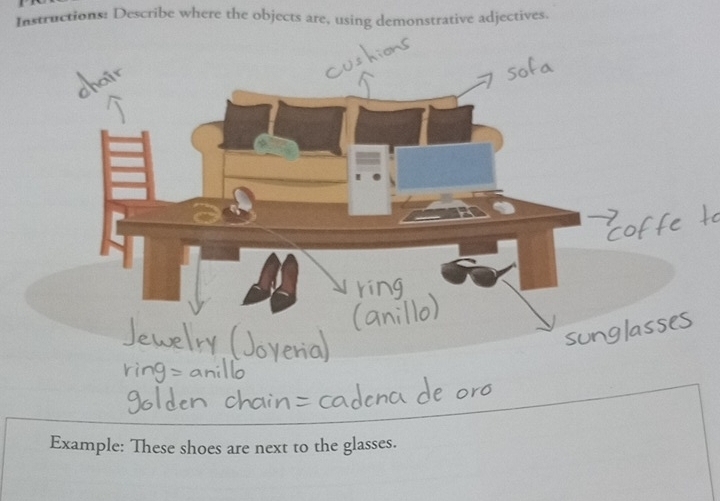 Instructions: Describe where the objects are, using demonstrative adjectives.
cushions
chair
sofa
coffe
ring
(anillo)
sunglasses
Jewelry (Joyeria)
ring = anillo
golden chain = cadena de oro
Example: These shoes are next to the glasses.